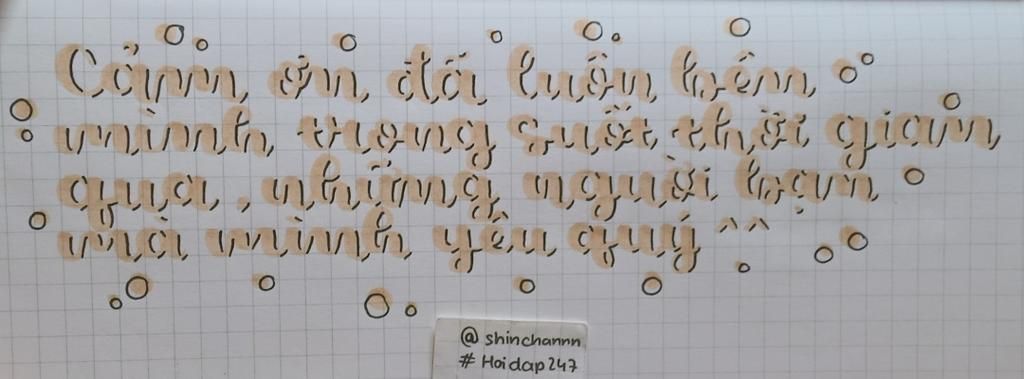 Cảm ơn đã luôn bên
mình trong suốt thời gian
qua, những người bạn
mà mình yêu quý ^^
@shinchannn
#Hoidap247